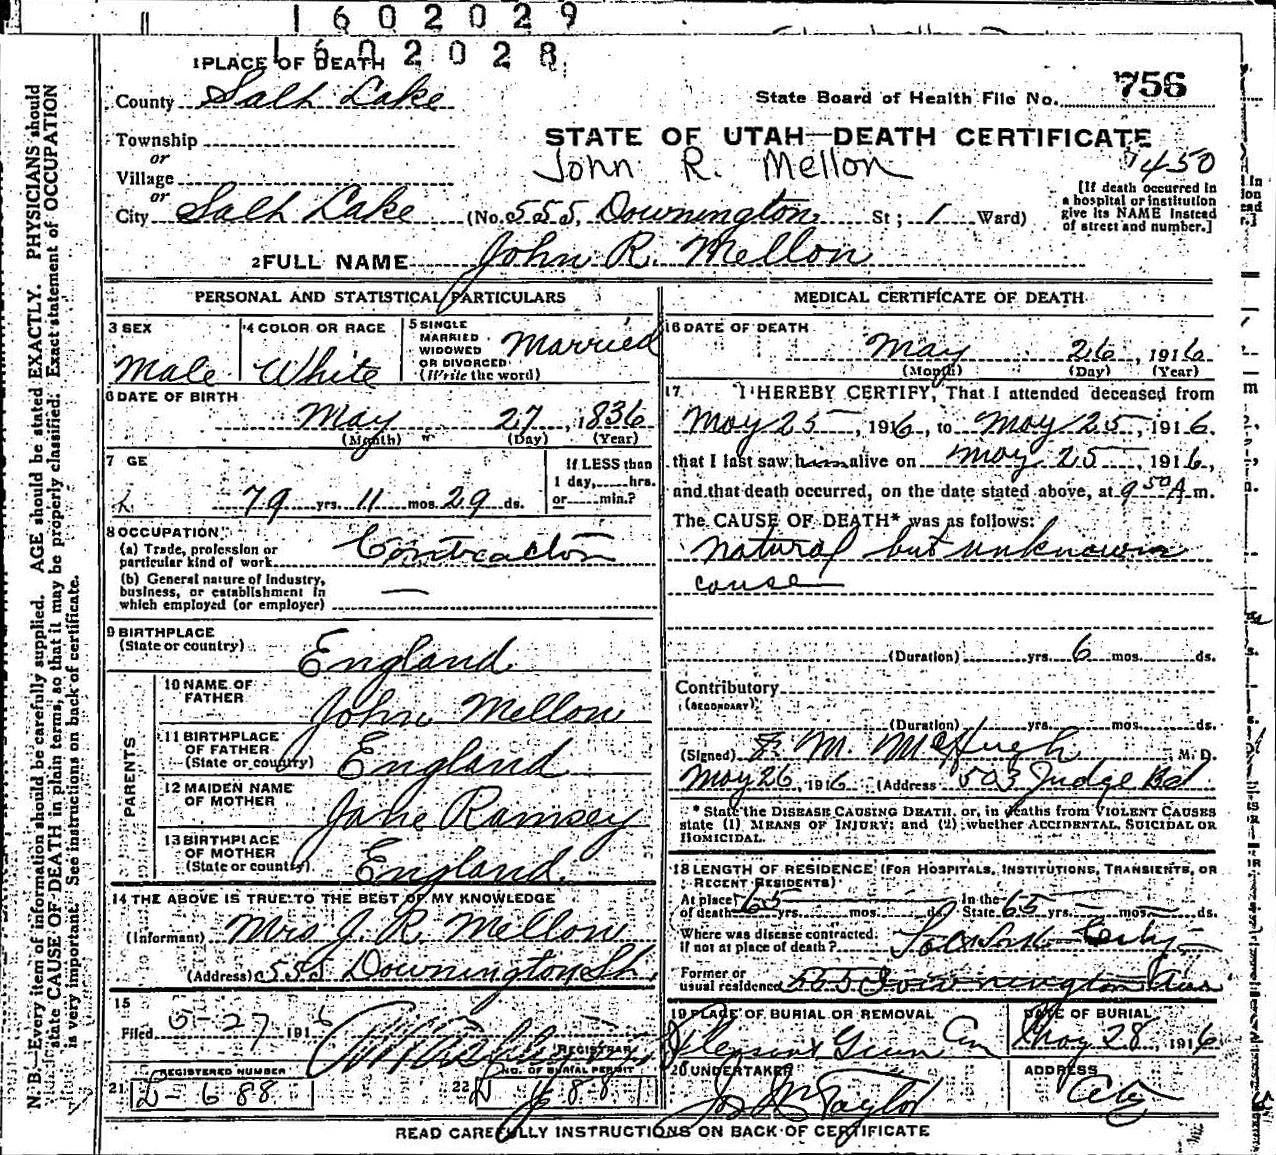 1602029
1602028
1 PLACE OF DEATH
County Salt Lake
State Board of Health File No. 756
Township
or
Village
or
STATE OF UTAH—DEATH CERTIFICATE
John R. Mellon
450
City Salt Lake (No. 555, Downington St; 1 Ward)
[If death occurred in
a hospital or institution
give its NAME instead
of street and number.]
2 FULL NAME John R. Mellon
PERSONAL AND STATISTICAL PARTICULARS
3 SEX
Male
4 COLOR OR RACE
White
5 SINGLE
MARRIED
WIDOWED
OR DIVORCED
(Write the word)
Married
6 DATE OF BIRTH
May 27, 1836
(Month) (Day) (Year)
7 GE
79 yrs. 11 mos. 29 ds.
If LESS than
1 day, hrs.
or min.?
8 OCCUPATION
(a) Trade, profession or
particular kind of work
Contractor
(b) General nature of industry,
business, or establishment in
which employed (or employer) —
9 BIRTHPLACE
(State or country)
England
PARENTS
10 NAME OF
FATHER
John Mellon
11 BIRTHPLACE
OF FATHER
(State or country)
England
12 MAIDEN NAME
OF MOTHER
Jane Ramsey
13 BIRTHPLACE
OF MOTHER
(State or country)
England
14 THE ABOVE IS TRUE TO THE BEST OF MY KNOWLEDGE
(Informant) Mrs J. R. Mellon
(Address) 555 Downington St.
15
Filed 27 191
REGISTRAR
REGISTERED NUMBER
21 L- 688
NO. OF BURIAL PERMIT
22 688
MEDICAL CERTIFICATE OF DEATH
16 DATE OF DEATH
May 26, 1916
(Month) (Day) (Year)
17 I HEREBY CERTIFY, That I attended deceased from
May 25, 1916, to May 25, 1916.
that I last saw him alive on May 25, 1916,
and that death occurred, on the date stated above, at 9 50 A m.
The CAUSE OF DEATH* was as follows:
Natural but unknown
cause
(Duration) yrs. 6 mos. ds.
Contributory
(SECONDARY)
(Duration) yrs. mos. ds.
(Signed) M. McHugh M. D.
May 26, 1916 (Address 503 Judge Bd
* State the DISEASE CAUSING DEATH, or, in deaths from VIOLENT CAUSES
state (1) MEANS OF INJURY; and (2) whether ACCIDENTAL, SUICIDAL OR
HOMICIDAL.
18 LENGTH OF RESIDENCE (FOR HOSPITALS, INSTITUTIONS, TRANSIENTS, OR
RECENT RESIDENTS)
At place
of death 65 yrs. mos. ds. In the
State 65 yrs. mos. ds.
Where was disease contracted,
If not at place of death? City
Former or
usual residence 555 Downington Ave
19 PLACE OF BURIAL OR REMOVAL
Pleasant Green Cem
DATE OF BURIAL
May 28, 1916
20 UNDERTAKER
Jos Wm Taylor
ADDRESS
City
READ CAREFULLY INSTRUCTIONS ON BACK OF CERTIFICATE
N.B.—Every item of information should be carefully supplied. AGE should be stated EXACTLY. PHYSICIANS should
state CAUSE OF DEATH in plain terms, so that it may be properly classified. Exact statement of OCCUPATION
is very important. See instructions on back of certificate.